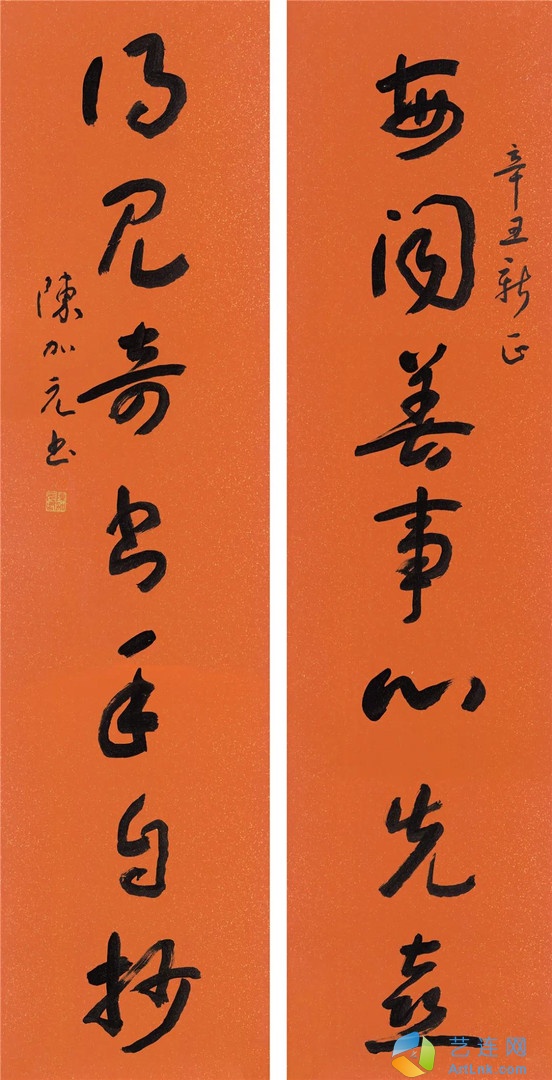 辛丑新正
每闻善事心先喜
得见奇书手自抄
陳加元书
艺连网
ArtLnk.com